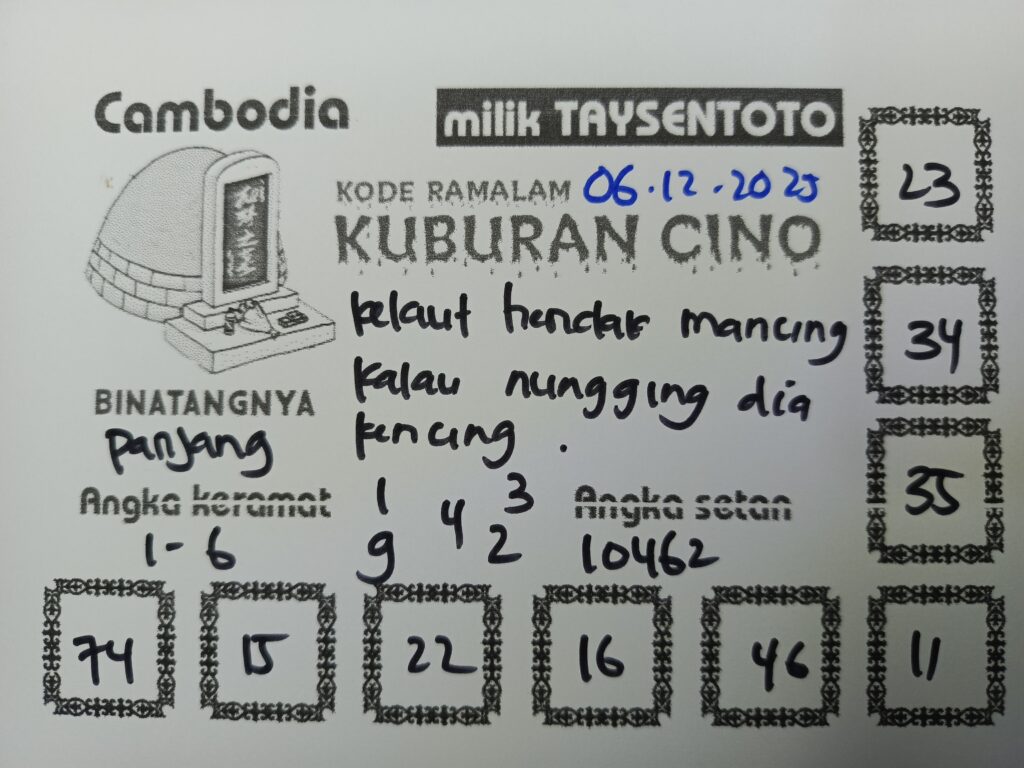 Cambodia
milik TAYSENTOTO
KODE RAMALAM 06.12.2025
KUBURAN CINO
kelaut hendak mancing
kalau nungging dia
kencing .
BINATANGNYA
panjang
Angka keramat
1-6
1 3
4
9 2
Angka setan
10462
23
34
35
74 15 22 16 46 11